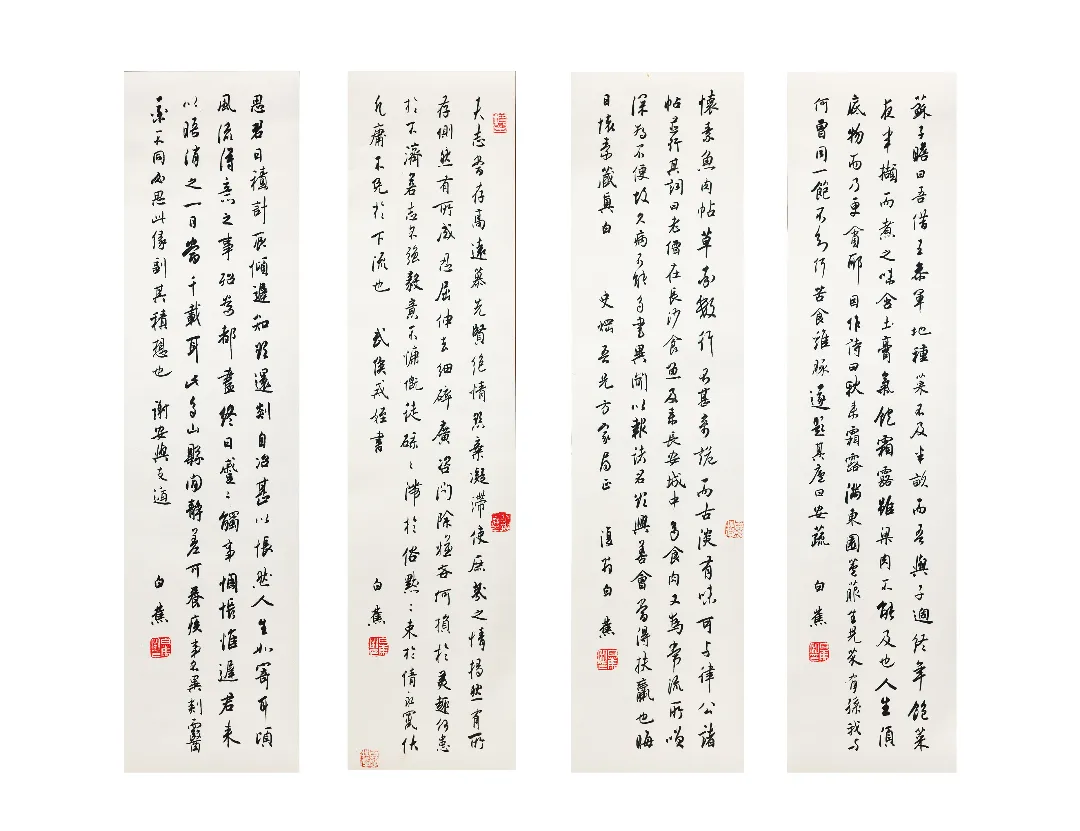 蘇子瞻曰吾借王參軍地種菜不及半畝而吾與子過終年飽菜
夜半擷而煮之味含土膏氣飽霜露雖梁肉不能及也人生須
底物而乃更貪耶因作詩曰秋來霜露滿東園蘆菔生兒芥有孫我與
何曾同一飽不知何苦食雞豚遂題其廬曰安蔬 白蕉
懷素魚肉帖草書數行不甚奇詭而古淡有味可与律公諸
帖並行其詞曰老僧在長沙食魚及來長安城中多食肉又為常流所嗅
深為不便故久病不能多書異聞以報諸君欲興善會當得扶羸也晦
日懷素藏真白 史 吾兄方家局正 復翁白蕉
夫志當存高遠慕先賢絕情欲棄凝滯使庶幾之情揭然有所
存惻然有所感忍屈伸去細碎廣咨問除嫌吝何損於美趣何患
於不濟若志不強毅意不慷慨徒碌々滯於俗默々束於情永竄伏
於凡庸不免於下流也 武侯戒侄書
白蕉
思君日積計辰傾遲知欲還剡自治甚以悵然人生如寄耳頃
風流得意之事殆為都盡終日慼々觸事惆悵惟遲君來
以晤消之一日當千載耳此多山縣閒靜差可養疾事不異剡而醫
藥不同必思此緣副其積想也 謝安與支遁
白蕉